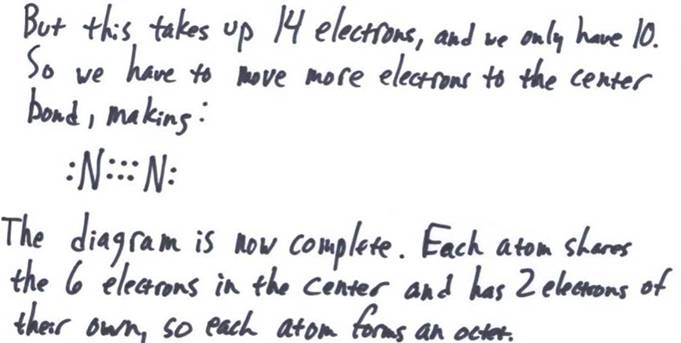 But this takes up 14 electrons, and we only have 10.
So we have to move more electrons to the center
bond, making:
:N:::N:
The diagram is now complete. Each atom shares
the 6 electrons in the center and has 2 electrons of
their own, so each atom forms an octet.